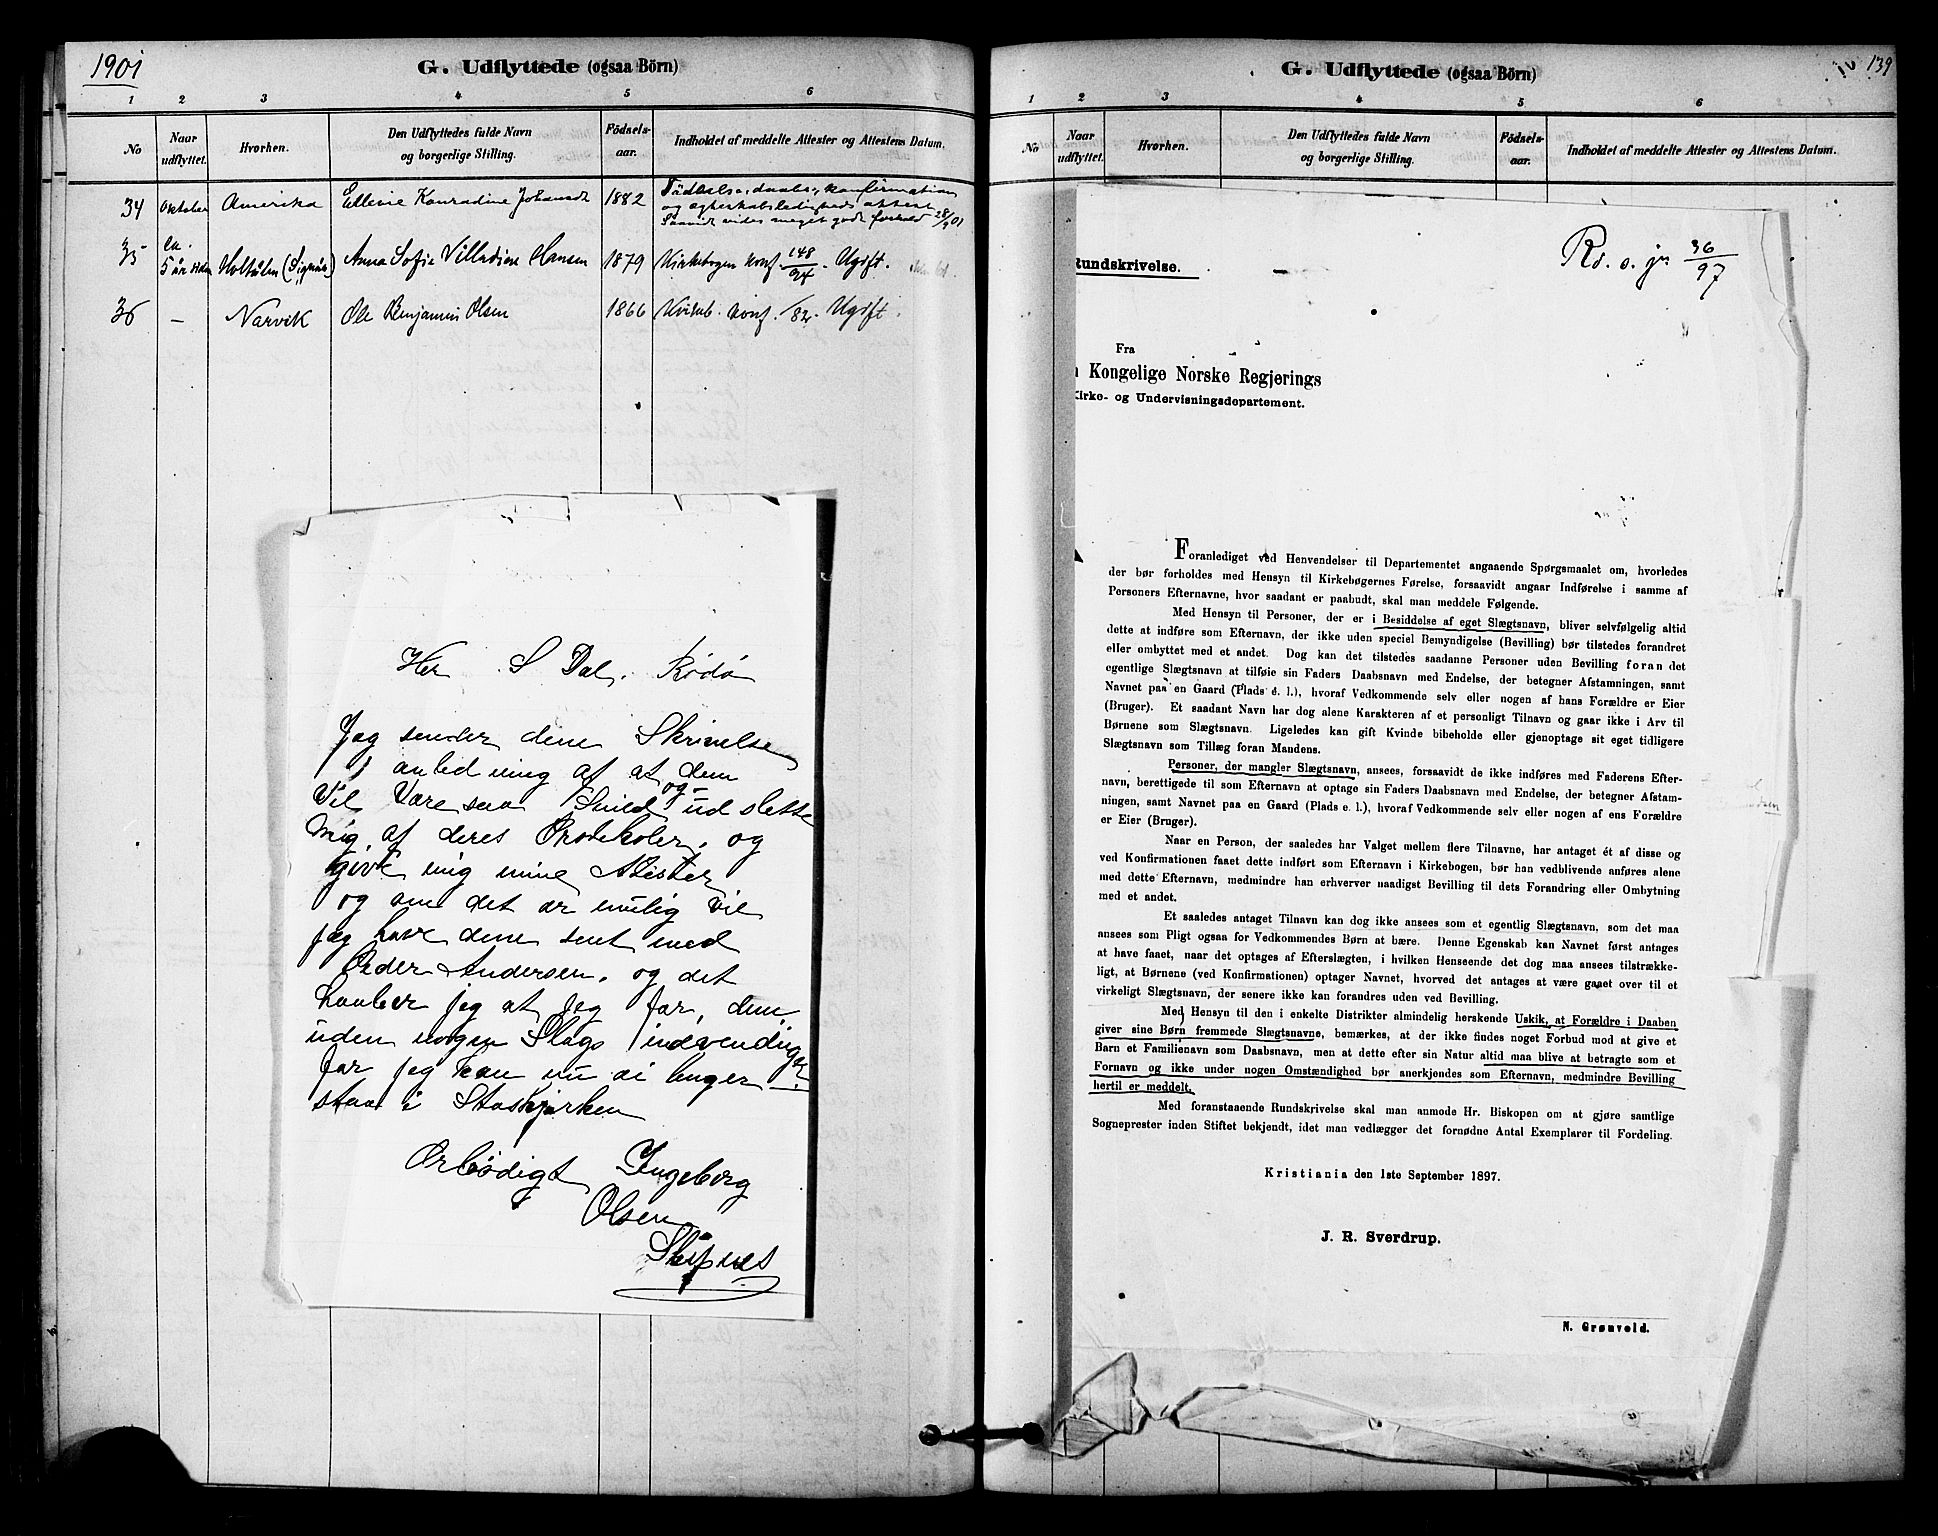 1901
G. Udflyttede (ogsaa Börn)
1 2 3 4 5 6
No
Naar udflyttet.
Hvorhen.
Den Udflyttedes fulde Navn og borgerlige Stilling.
Födsels-aar.
Indholdet af meddelte Attester og Attestens Datum.
34 Oktober Amerika Ellevie Konradine Johansdt 1882 Födsels-, daabs-, konfirmation
og ægteskabsledigheds attest
Saavidt vides meget godt forhold 28/9 01
35 ca. 5 år siden Holtålen (Signås) Anna Sofie Villadine Hansen 1879 Kirkebogen konf. 148/94. Ugift.
36 – Narvik Ole Benjamin Olsen 1866 konf. /82. Ugift.
Her S Dal. Rödö
Jag sender dene Skrivelse
i anledning af at dem
Vil Være saa Snild og ud slette
Mig af deres Protokoler, og
give mig mine Atester
og om det er mulig Vil
jag have dem sent med
Peder Andersen, og det
haaber jeg at jeg far, dem
uden nogen Slags indvendinger
far jeg kan nu ei lenger
staa i Staskjærken
Ærbödigt Ingeborg
Olsen
G. Udflyttede (ogsaa Börn)
139
1 2 3 4 5 6
No
Naar udflyttet.
Hvorhen.
Den Udflyttedes fulde Navn og borgerlige Stilling.
Födsels-aar.
Indholdet af meddelte Attester og Attestens Datum.
Rundskrivelse.
Rd. o. jn 36/97
Fra
Kongelige Norske Regjerings
Kirke- og Undervisningsdepartement.
Foranlediget ved Henvendelser til Departementet angaaende Spørgsmaalet om, hvorledes
der bør forholdes med Hensyn til Kirkebøgernes Førelse, forsaavidt angaar Indførelse i samme af
Personers Efternavne, hvor saadant er paabudt, skal man meddele Følgende.
Med Hensyn til Personer, der er i Besiddelse af eget Slægtsnavn, bliver selvfølgelig altid
dette at indføre som Efternavn, der ikke uden speciel Bemyndigelse (Bevilling) bør tilstedes forandret
eller ombyttet med et andet. Dog kan det tilstedes saadanne Personer uden Bevilling foran det
egentlige Slægtsnavn at tilføie sin Faders Daabsnavn med Endelse, der betegner Afstamningen, samt
Navnet paa en Gaard (Plads e. l.), hvoraf Vedkommende selv eller nogen af hans Forældre er Eier
(Bruger). Et saadant Navn har dog alene Karakteren af et personligt Tilnavn og gaar ikke i Arv til
Børnene som Slægtsnavn. Ligeledes kan gift Kvinde bibeholde eller gjenoptage sit eget tidligere
Slægtsnavn som Tillæg foran Mandens.
Personer, der mangler Slægtsnavn, ansees, forsaavidt de ikke indføres med Faderens Efter-
navn, berettigede til som Efternavn at optage sin Faders Daabsnavn med Endelse, der betegner Afstam-
ningen, samt Navnet paa en Gaard (Plads e. l.), hvoraf Vedkommende selv eller nogen af ens Forældre
er Eier (Bruger).
Naar en Person, der saaledes har Valget mellem flere Tilnavne, har antaget ét af disse og
ved Konfirmationen faaet dette indført som Efternavn i Kirkebogen, bør han vedblivende anføres alene
med dette Efternavn, medmindre han erhverver naadigst Bevilling til dets Forandring eller Ombytning
med et andet.
Et saaledes antaget Tilnavn kan dog ikke ansees som et egentlig Slægtsnavn, som det maa
ansees som Pligt ogsaa for Vedkommendes Børn at bære. Denne Egenskab kan Navnet først antages
at have faaet, naar det optages af Efterslægten, i hvilken Henseende det dog maa ansees tilstrække-
ligt, at Børnene (ved Konfirmationen) optager Navnet, hvorved det antages at være gaaet over til et
virkeligt Slægtsnavn, der senere ikke kan forandres uden ved Bevilling.
Med Hensyn til den i enkelte Distrikter almindelig herskende Uskik, at Forældre i Daaben
giver sine Børn fremmede Slægtsnavne, bemærkes, at der ikke findes noget Forbud mod at give et
Barn et Familienavn som Daabsnavn, men at dette efter sin Natur altid maa blive at betragte som et
Fornavn og ikke under nogen Omstændighed bør anerkjendes som Efternavn, medmindre Bevilling
hertil er meddelt.
Med foranstaaende Rundskrivelse skal man anmode Hr. Biskopen om at gjøre samtlige
Sogneprester inden Stiftet bekjendt, idet man vedlægger det fornødne Antal Exemplarer til Fordeling.
Kristiania den 1ste September 1897.
J. R. Sverdrup.
N. Grønvold.